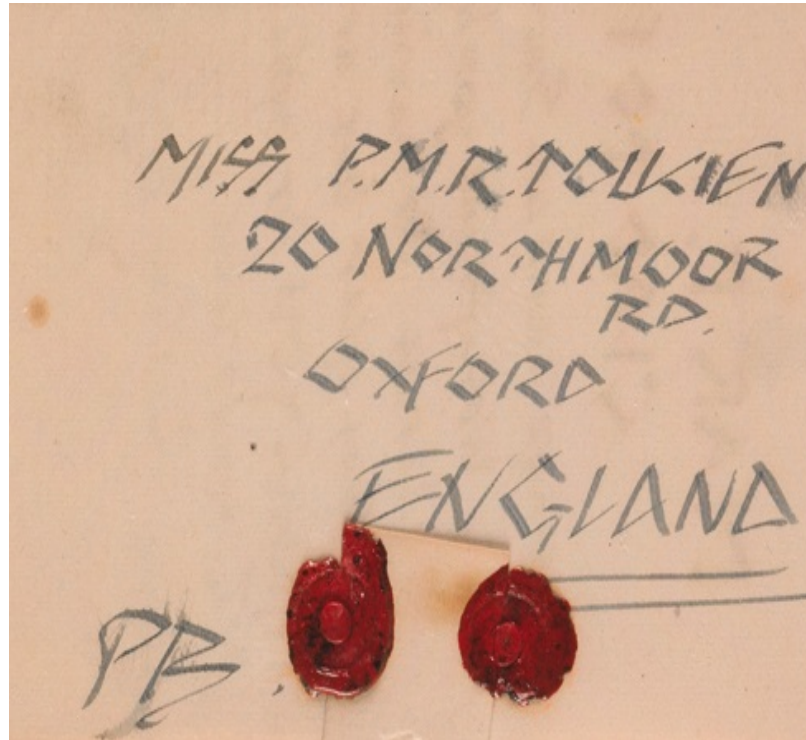 MISS P.M.R.TOLKIEN
20 NORTHMOOR
RD.
OXFORD
ENGLAND
PB.